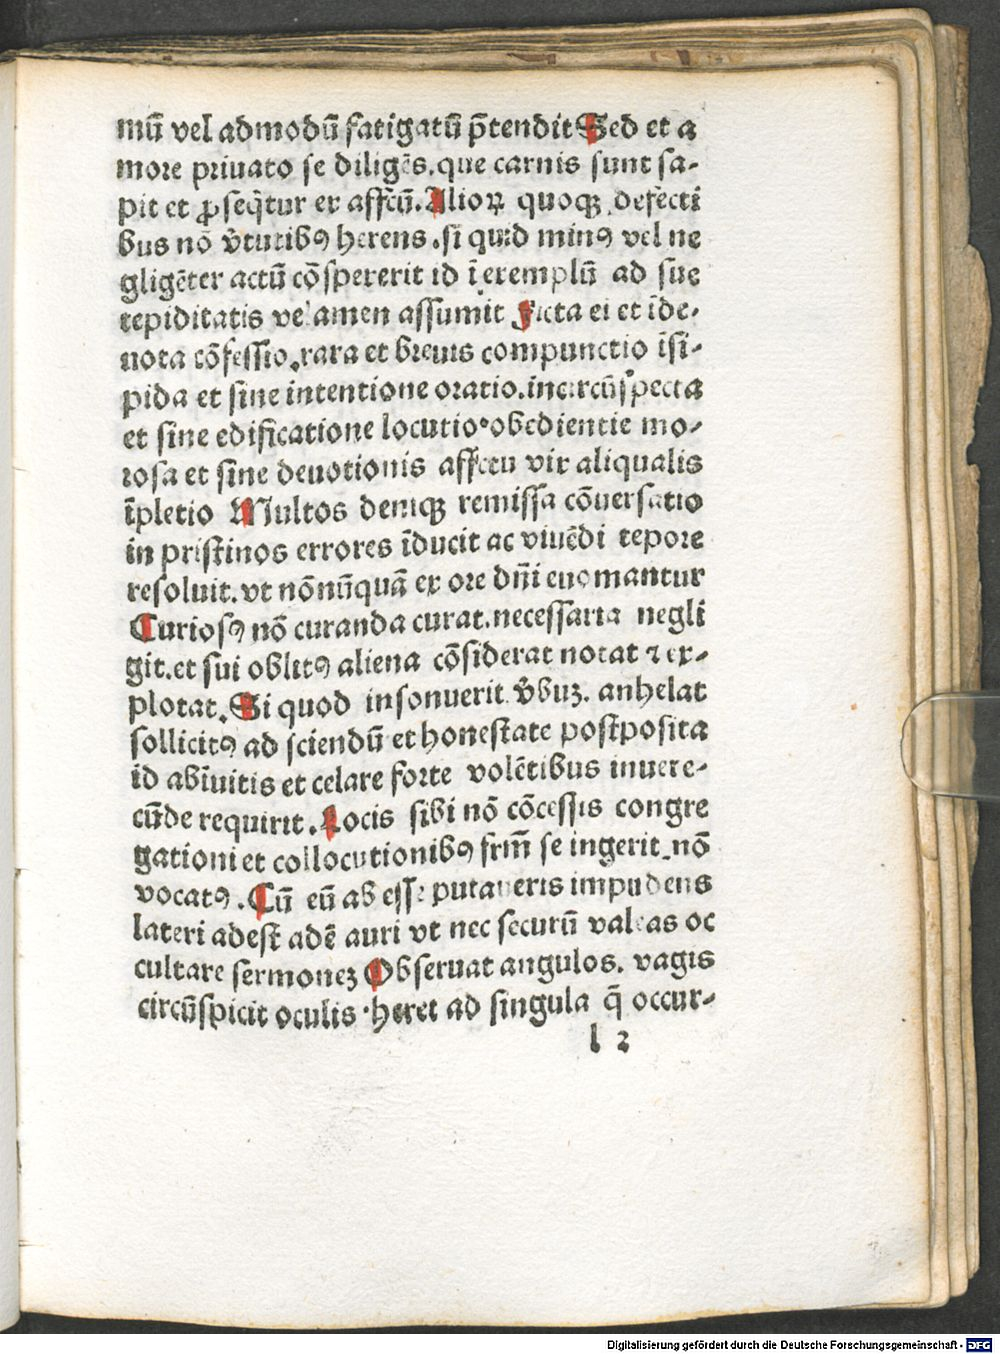 mū vel admodū fatigatū p̄tendit Sed et a
more priuato se diligēs. que carnis sunt sa-
pit et ꝓseq̄tur ex affc̄ū. Alioꝝ quoqꝫ defecti
bus nō v̄tutibꝯ herens. si quid minꝯ vel ne
gligēter actū cōspexerit id ī exemplū ad sue
tepiditatis velamen assumit Ficta ei et īde-
uota cōfessio. rara et breuis compunctio īsi-
pida et sine intentione oratio. incircūspecta
et sine edificatione locutio. obedientie mo-
rosa et sine deuotionis affectu vix aliqualis
īpletio Multos deniqꝫ remissa cōuersatio
in pristinos errores īducit ac viuēdi tepore
resoluit. vt nōnūquā ex ore dn̄i euomantur
Curiosꝯ nō curanda curat. necessaria negli
git. et sui oblitꝯ aliena cōsiderat notat ⁊ ex-
plorat. Si quod insonuerit v̄buꝫ. anhelat
sollicitꝯ ad sciendū et honestate postposita
id abīuitis et celare forte volētibus inuere-
cūde requirit. Locis sibi nō cōcessis congre
gationi et collocutionibꝯ frm̄ se ingerit. nō
vocatꝯ. Cū eū ab esse putaueris impudens
lateri adest adē auri vt nec securū valeas oc
cultare sermoneꝫ Obseruat angulos. vagis
circūspicit oculis. heret ad singula q̄ occur-
l 2
Digitalisierung gefördert durch die Deutsche Forschungsgemeinschaft - DFG